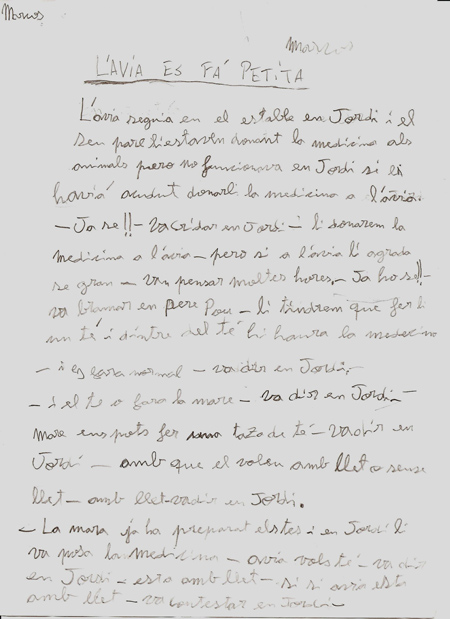 Marcos
Marcos
L'ÀVIA ES FA' PETITA
L'àvia seguia en el estable en Jordi i el
seu pare li estaven donant la medicina als
animals pero no funcionava en Jordi si li
havia acudut donarli la medicina a l'àvia.
– Ja se!! – va cridar en Jordi – li donarem la
medicina a l'àvia – pero si a l'àvia li agrada
se gran – van pensar moltes hores. – Ja ho se!! –
va bramar en pere Pau – li tindrem que fer li
un té i dintre del té hi haura la medecina
– i es fara normal – va dir en Jordi. –
– i el te o fara la mare – va dir en Jordi –
mare ens pots fer una taza de té – va dir en
Jordi – amb que el voleu amb llet o sense
llet – amb llet – va dir en Jordi.
– La mara ja ha preparat els tes i en Jordi li
va posa la medicina – avia vols té – va dir
en Jordi – esta amb llet – si si avia esta
amb llet – va contestar en Jordi –